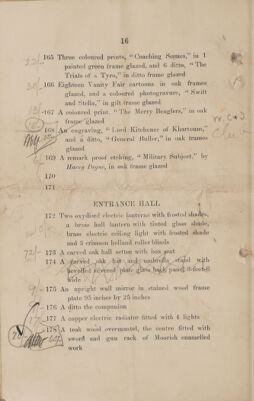 16
165 Three coloured prints, "Coaching Scenes," in 1
painted green frame glazed, and 6 ditto, "The
Trials of a Tyro," in ditto frame glazed
166 Eighteen Vanity Fair cartoons in oak frames
glazed, and a coloured photogravure, "Swift
and Stella," in gilt frame glazed
167 A coloured print, "The Merry Beaglers," in oak
frame glazed
168 An engraving, "Lord Kitchener of Khartoum,"
and a ditto, "General Buller," in oak frames
glazed
169 A remark proof etching, "Military Subject," by
Harry Payne, in oak frame glazed
170
171
ENTRANCE HALL
172 Two oxydised electric lanterns with frosted shades,
a brass hall lantern with tinted glass shade,
brass electric ceiling light with frosted shade
and 3 crimson holland roller blinds
173 A carved oak hall settee with box seat
174 A carved oak hat and umbrella stand with
bevelled plate glass back panel 3-foot-6
wide
175 An upright wall mirror in stained wood frame
plate 95 inches by 25 inches
176 A ditto the companion
177 A copper electric radiator fitted with 4 lights
178 A teak wood overmantel, the centre fitted with
sword and gun rack of Moorish enamelled
work